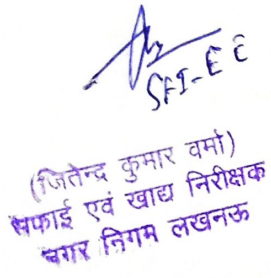 SFI-EE
(जितेन्द्र कुमार वर्मा)
सफाई एवं खाद्य निरीक्षक
नगर निगम लखनऊ